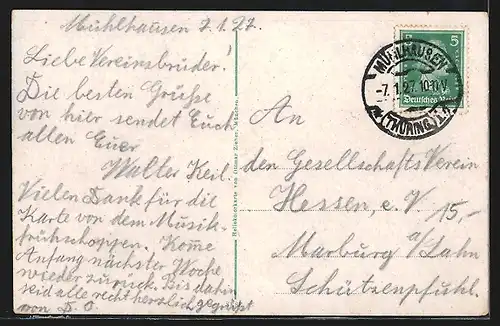 Mühlhausen 7.1.27.
Liebe Vereinsbrüder!
Die besten Grüsse
von hier sendet Euch
allen Euer
Walter Keil.
Vielen Dank für die
Karte von dem Musik-
frühschoppen. Kome
Anfang nächster Woche
wieder zurück. Bis dahin
seid alle recht herzlich gegrüßt
von D. O.
Heliokunstkarte von Ottmar Zieher, München
5 5
Deutsches Reich
MÜHLHAUSEN
-7.1.27. 10-11V
(THÜRING.)
An
den Gesellschafts Verein
Hessen, e. V.
15,-
Marburg a/Lahn
Schützenpfuhl.